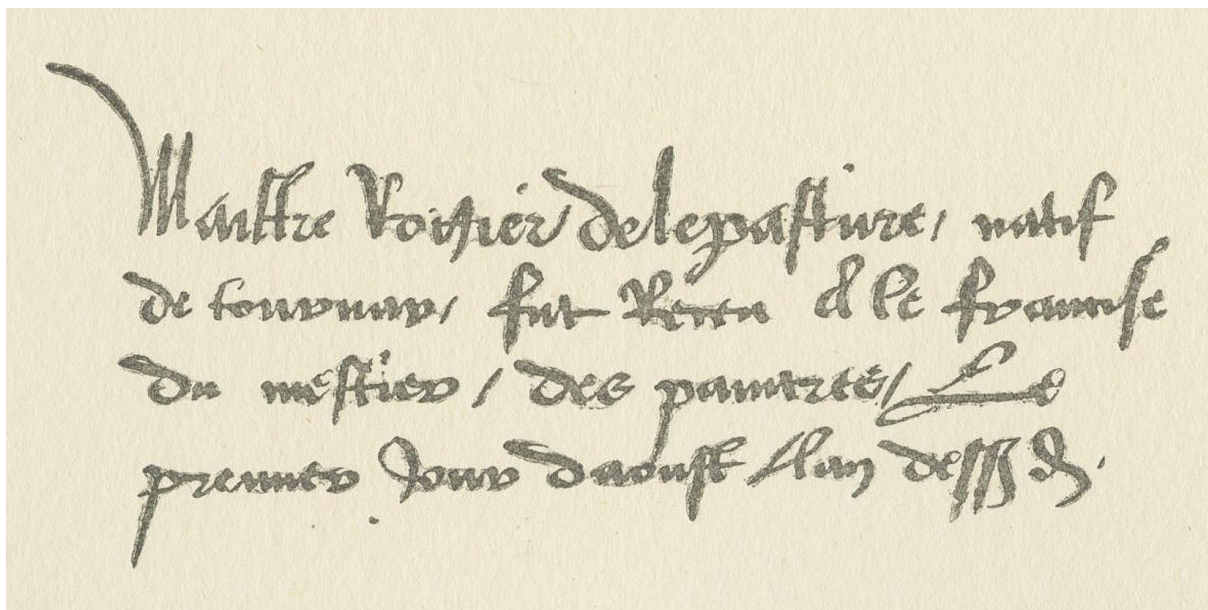 Maistre Rogier de le pasture, natif
de tournay, fut Receu a le francise
du mestier / des paintres / Le
premier Jour daoust Lan dess{us} d.